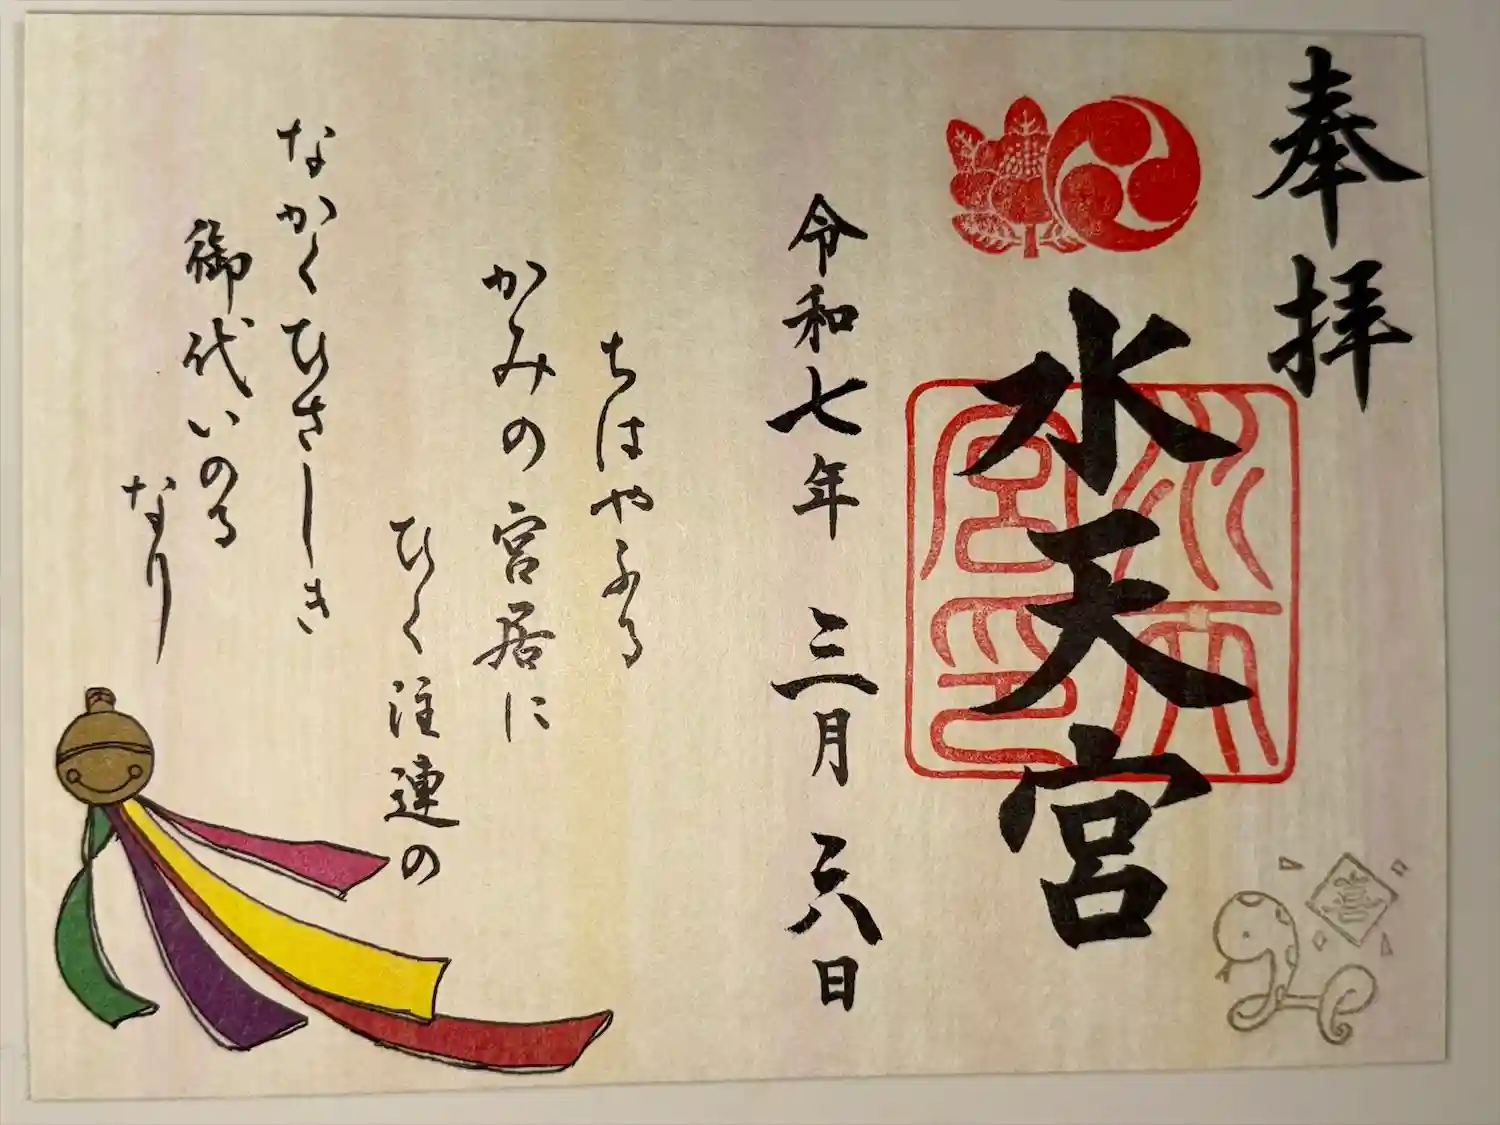 奉拝
水天宮
水天宮印
令和七年 三月 二八日
ちはやふる
かみの宮居に
ひく注連の
なかくひさしき
御代いのる
なり